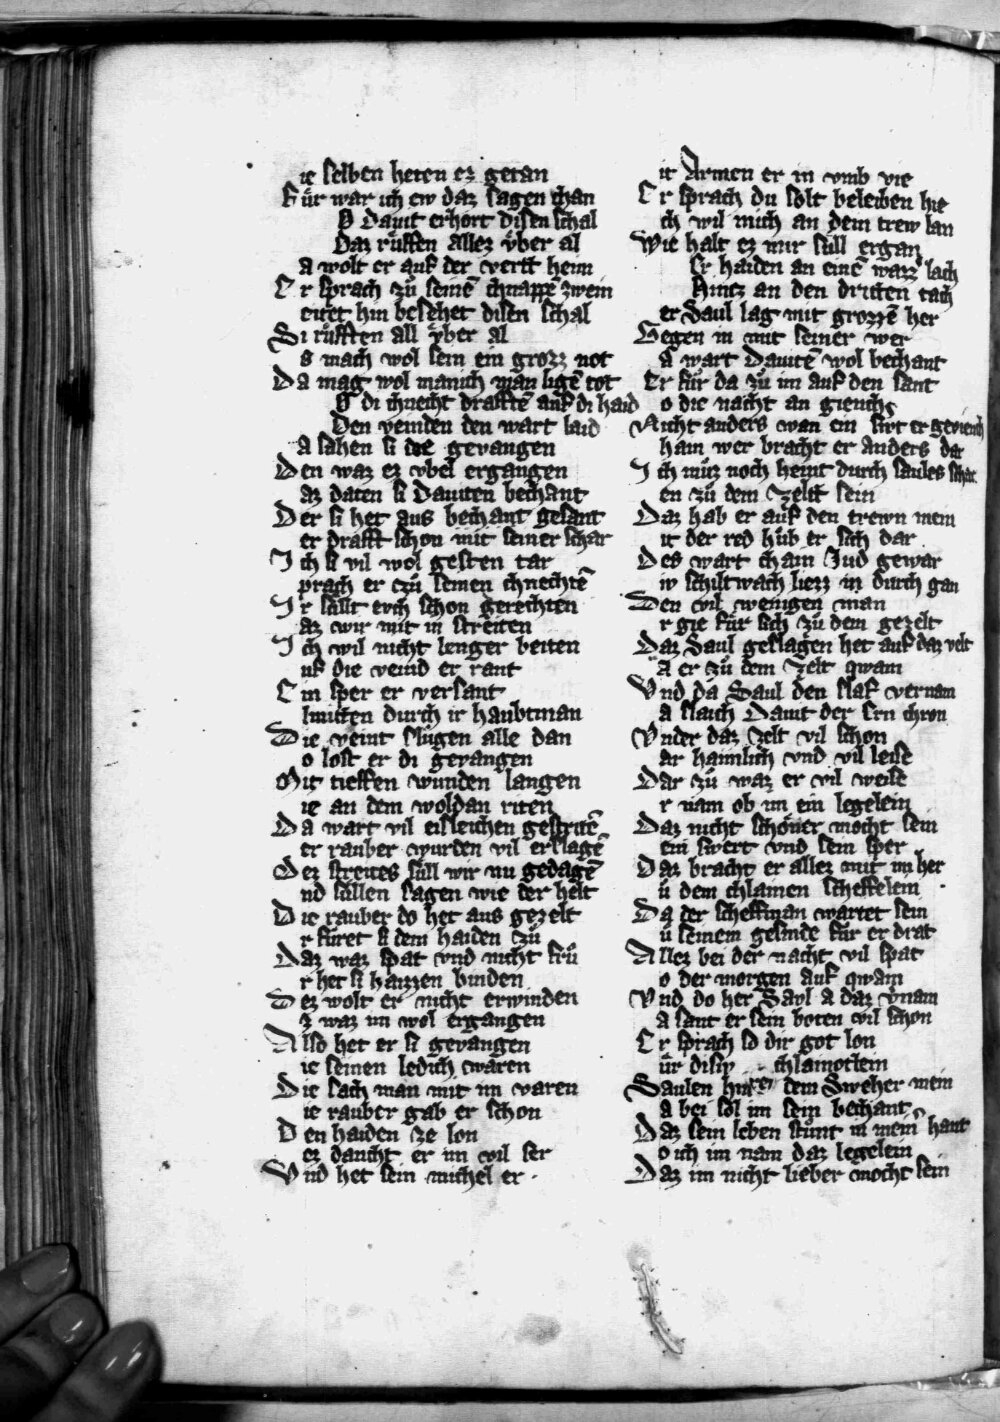 ie selben heten ez getan
Fůr war ich ew daz sagen chan
O Dauit erhort disen schal
Daz růffen allez v̈ber al
a wolt er auf der vertt heim
Er sprach zů seinē chnappē zwein
eitet hin besehet disen schal
Si růfften all v̈ber al
s mach wol sein ein grozz not
Da mag wol manich man ligē tot
O di chnecht drafftē auf di haid
Den veinden den wart laid
a sahen si die gevangen
Den waz ez vbel ergangen
az daten si Dauiten bechant
Der si het aus bechant gesant
er drafft schon mit seiner schar
Ich si vil wol gesten tar
prach er czů seinen chnechtē
Ir sullt evch schon gerechten
az wir mit in streiten
Ich wil nicht lenger beiten
uf die veind er rant
Ein sper er versant
lmitten durch ir haubtman
Die veint slůgen alle dan
o lost er di gevangen
Mit tieffen wunden langen
ie an dem woldan riten
Da wart vil eisleichen gestritē
er rauber wurden vil erslagē
Dez streites sůll wir nu gedagē
nd sůllen sagen wie der helt
Die rauber do het aus gezelt
r furet si dem haiden zů
Daz waz spat vnd nicht frů
r het si haizzen binden
Dez wolt er nicht erwinden
z waz im wol ergangen
Also het er si gevangen
ie seinen ledich waren
Die sach man mit im varen
ie rauber gab er schon
Den haiden ze lon
ez daucht er im vil ser
Vnd het sein michel er
it Armen er in vmb vie
Er sprach du solt beleiben hie
ch wil mich an dein trew lan
Wie halt ez mir sůll ergan
Er haiden an einē warz lach
Hincz an den dritten tach
er Saul lag mit grozzē her
Gegen in mit seiner wer
a wart Dauitē wol bechant
Er fůr da zů im auf den sant
o die nacht an giench
Nicht anders wan ein sirt er geviench
ham wer bracht er anders dar
Ich můz noch heint durch saules schar
en zů dem zelt sein
Daz hab er auf den trewn mein
it der red hůb er sich dar
Des wart cham Jud gewar
iv schiltwach liezz in durch gan
Den vil wenigen man
r gie fůr sich zů dem gezelt
Daz Saul geslagen het auf daz velt
A er zů dem zelt qwam
Vnd da Saul den slaf vernam
a slaich Dauit der ern chron
Vnder daz zelt vil schon
ar haimlich vnd vil leise
Dar zů waz er vil weise
r nam ob im ein legelein
Daz nicht schöner mocht sein
ein swert vnd sein sper
Daz bracht er allez mit im her
ů dem chlainen scheffelein
Da der scheffman wartet sein
ů seinem gesinde fůr er drat
Allez bei der nacht vil spat
o der morgen auf qwam
Vnd do her Savl a daz v̓nam
a sant er sein boten vil schon
Er sprach so dir got lon
ůr disiv chlainotlein
Saulen dem Sweher mein
a bei sol im sein bechant
Daz sein leben stůnt in meiner hant
o ich im nam daz legelein
Daz im nicht lieber mocht sein